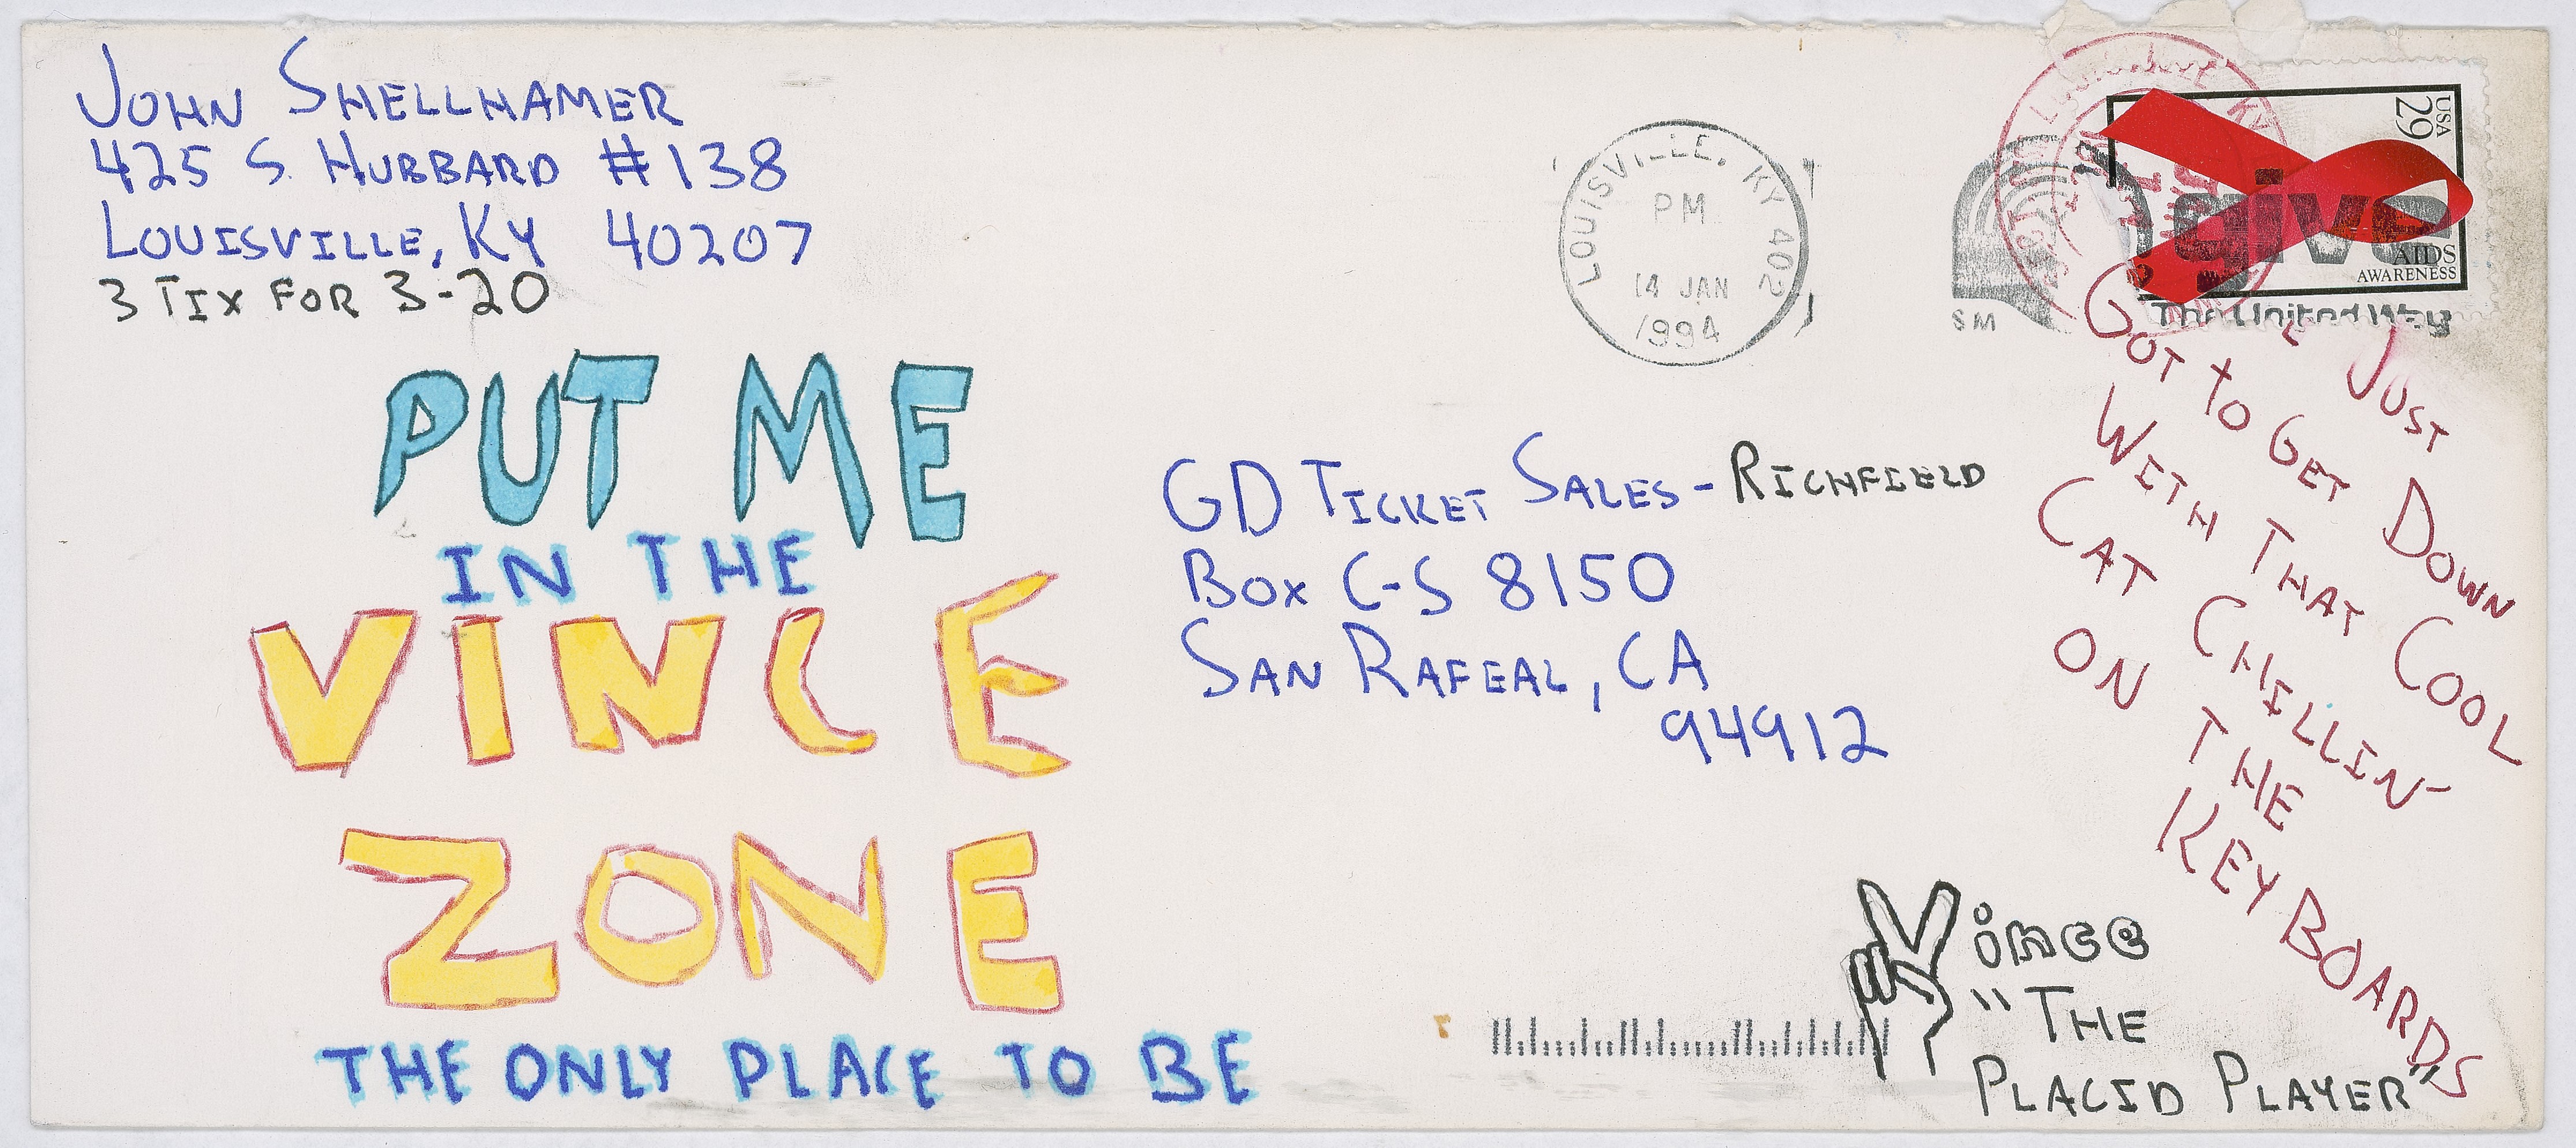 JOHN SHELLHAMER
425 S. HUBBARD #138
LOUISVILLE, KY 40207
3 TIX FOR 3-20
LOUISVILLE, KY 402
PM
14 JAN
1994
USA
29
give
AIDS
AWARENESS
The United Way
SM
PUT ME
IN THE
VINCE
ZONE
THE ONLY PLACE TO BE
GD TICKET SALES - RICHFIELD
BOX C-S 8150
SAN RAFEAL, CA
94912
JUST
GOT TO GET DOWN
WITH THAT COOL
CAT CHILLIN'
ON THE
KEYBOARDS
Vince
"THE
PLACID PLAYER"